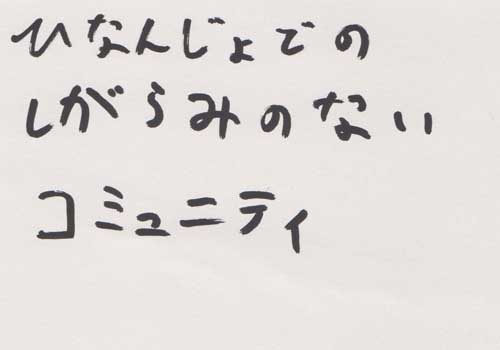 ひなんじょでの
しがらみのない
コミュニティ